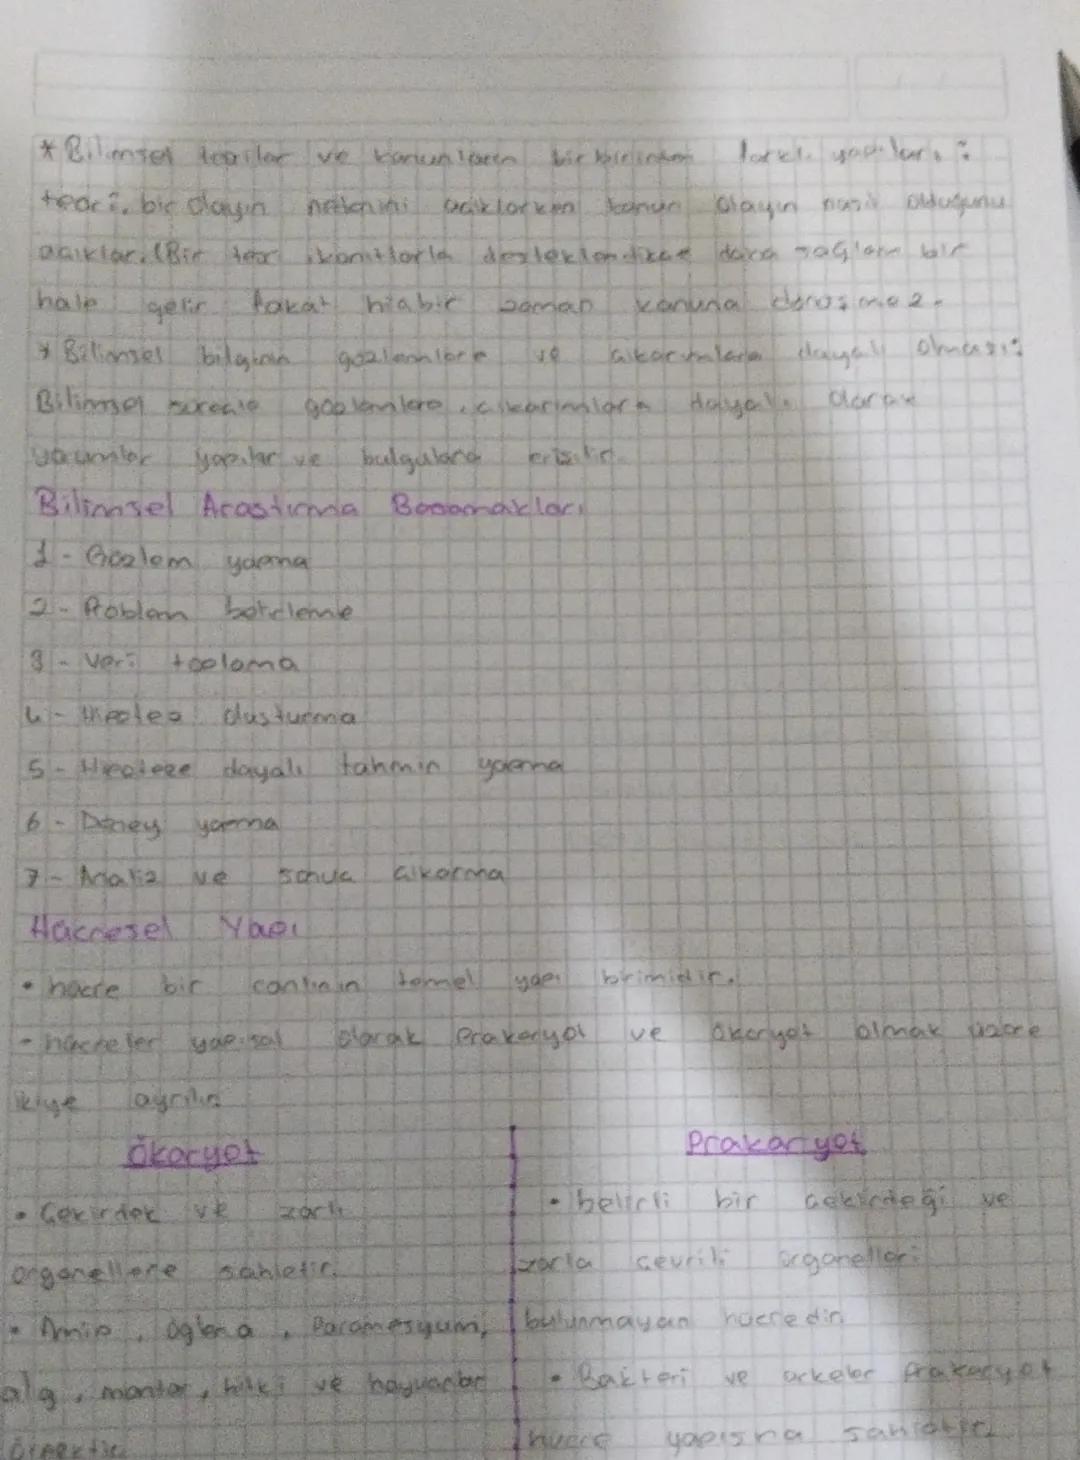 * Bilimsel teoriler ve kanunların birbirinden farklı yapıları :
teori, bir olayın nedenini açıklarken kanun olayın nasıl olduğunu
açıklar. (Bir teori kanıtlarla desteklendikçe daha sağlam bir
hale gelir fakat hiçbir zaman kanuna dönüşmez.
* Bilimsel bilginin gözlemlere ve çıkarımlara dayalı olması:
Bilimsel süreçte gözlemlere, çıkarımlara dayalı olarak
yorumlar yapılır ve bulgulara erişilir.
Bilimsel Araştırma Basamakları
1 - Gözlem yapma
2 - Problem belirleme
3 - Veri toplama
4 - Hipotez oluşturma
5 - Hipoteze dayalı tahmin yapma
6 - Deney yapma
7 - Analiz ve sonuç çıkarma
Hücresel Yapı
• hücre bir canlının temel yapı birimidir.
- hücreler yapısal olarak Prokaryot ve Ökaryot olmak üzere
ikiye ayrılır
Ökaryot
• Çekirdek ve zarlı
organellere sahiptir.
• Amip, öglena, Paramesyum,
alg, mantar, bitki ve hayvanlar
örnektir
Prokaryot
• belirli bir çekirdeği ve
zarla çevrili organelleri
bulunmayan hücredir
• Bakteri ve arkeler Prokaryot
hücre yapısına sahiptir